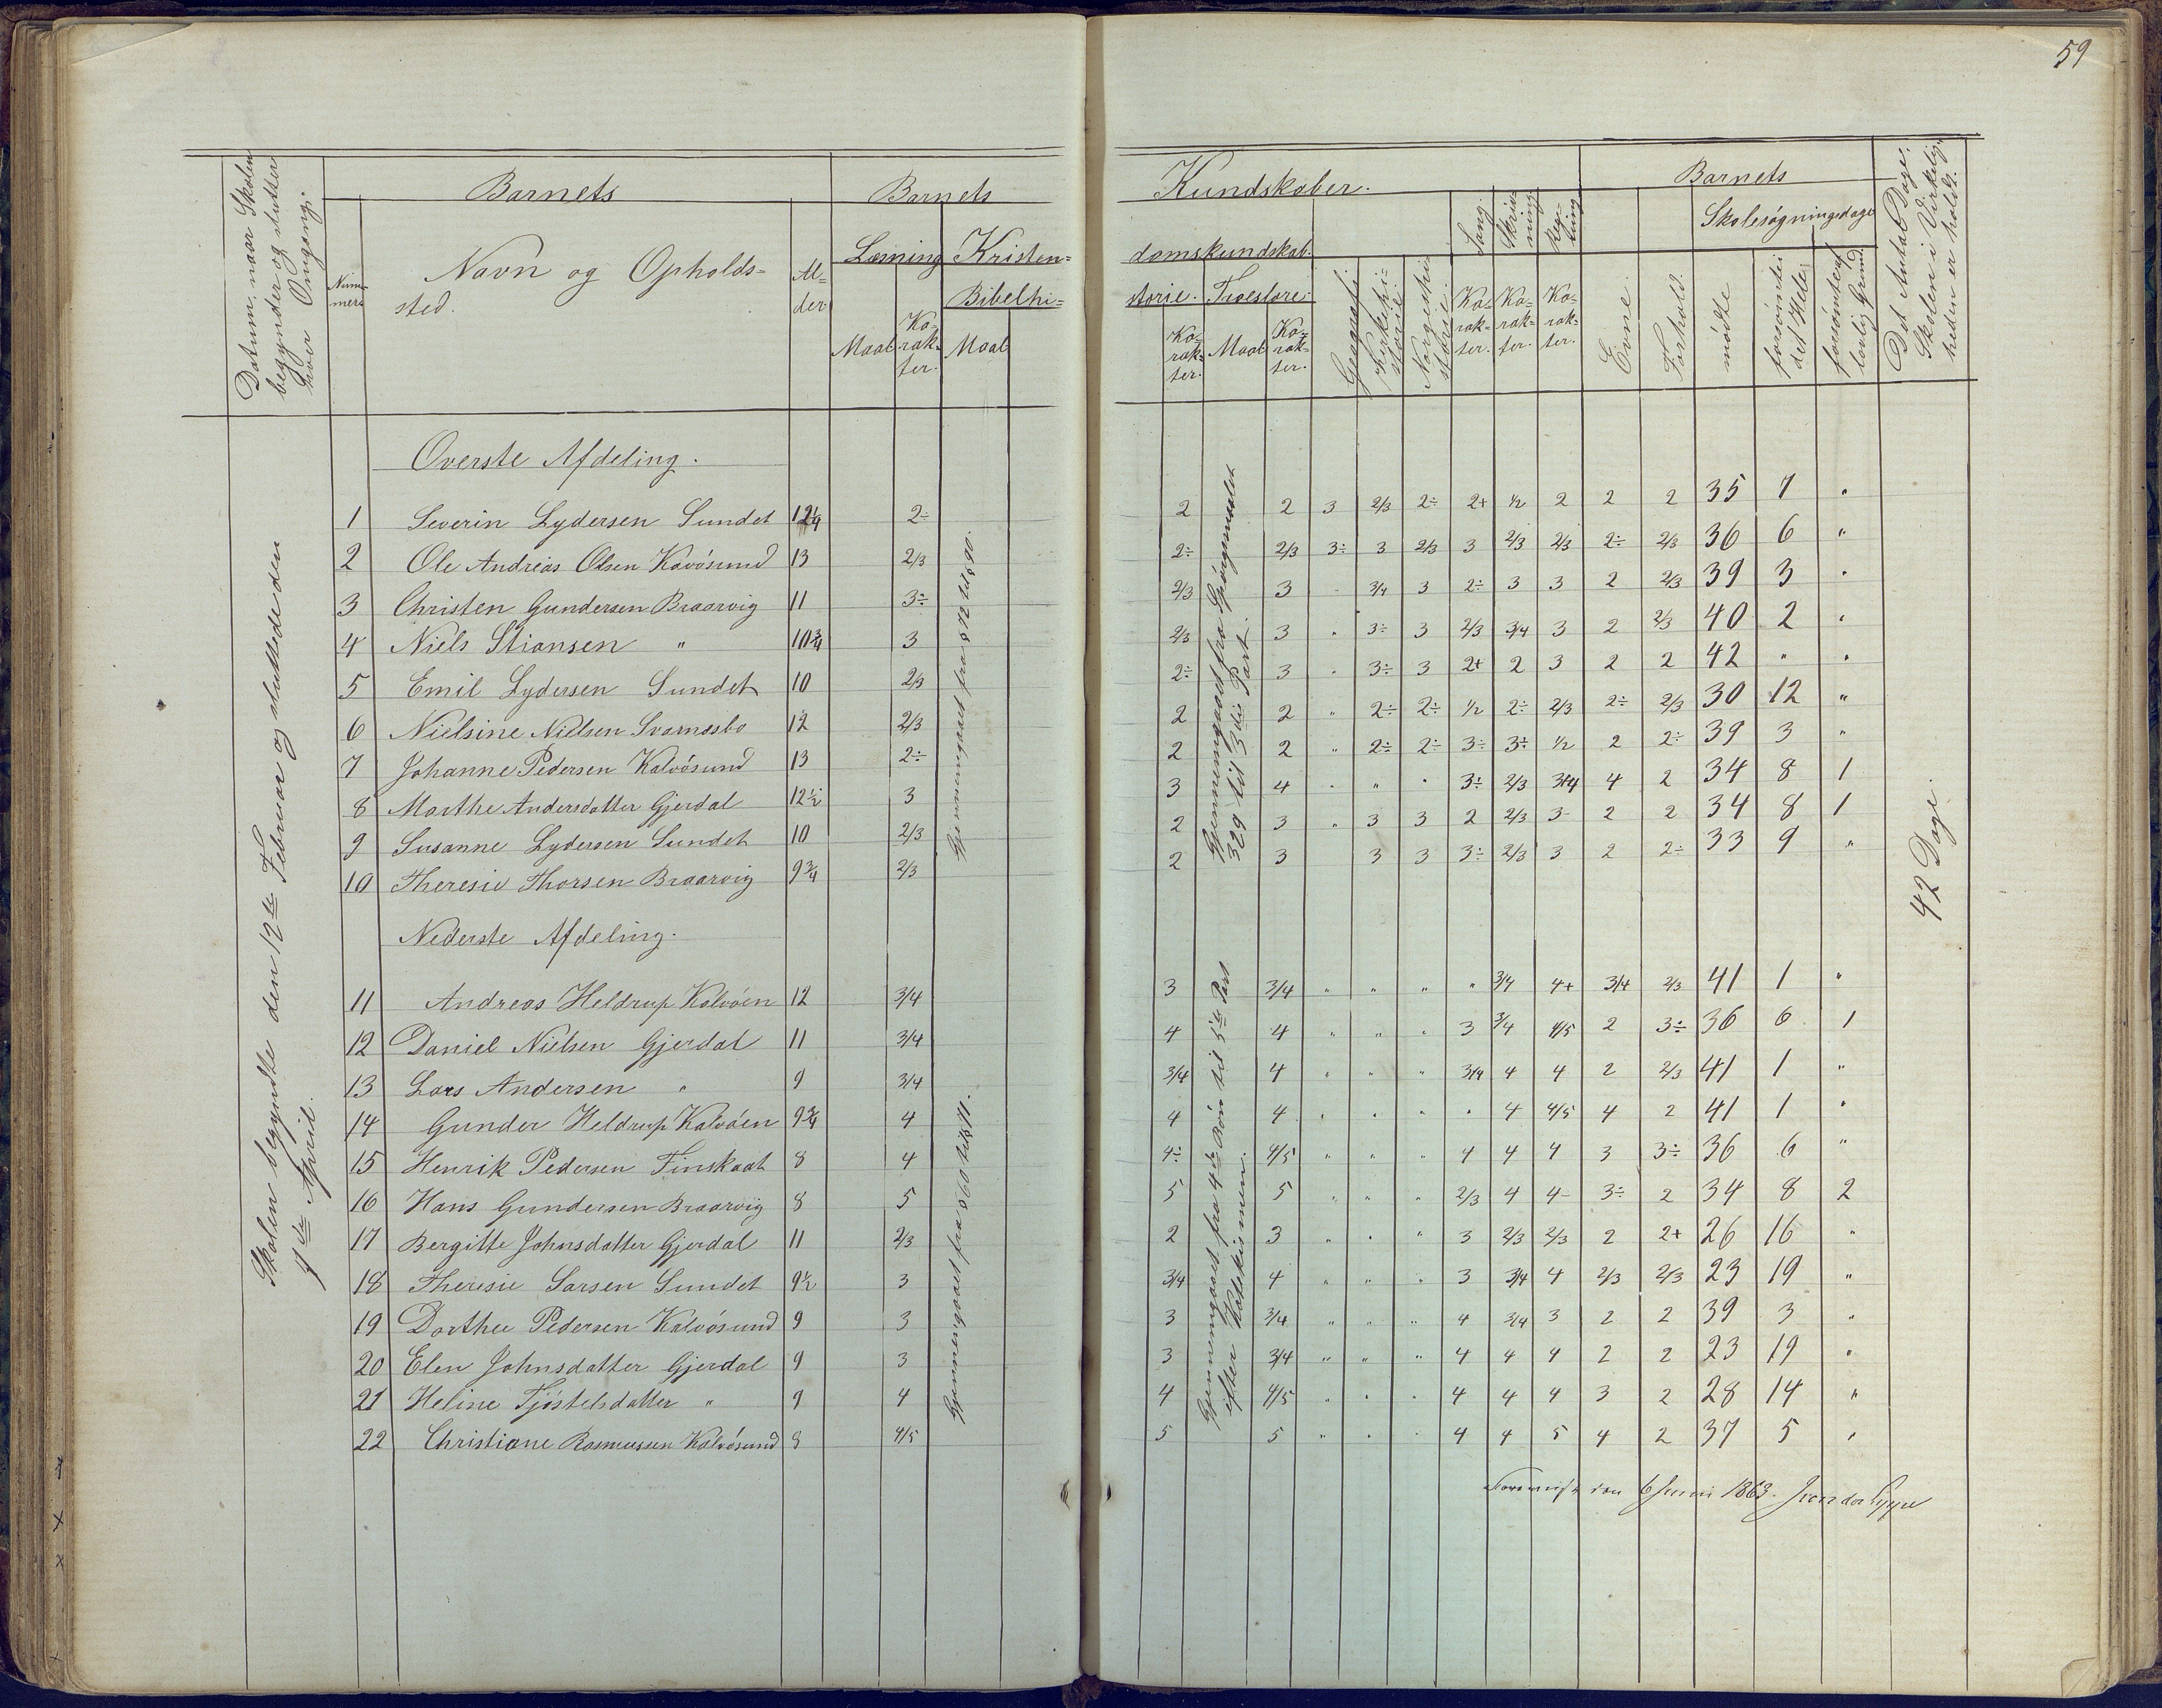 59
Datum, naar Skolen
begynder og slutter
hver Omgang.
Barnets
Num-
mer
Navn og Opholds-
sted.
Al-
der.
Barnets
Læsning
Kristen-
Bibelhi-
Maal
Ka-
rak-
ter.
Maal
Kundskaber.
domskundskab.
storie.
Troeslære.
Ka-
rak-
ter.
Maal
Ka-
rak-
ter.
Geografi
Kirkehi-
storie.
Norgeshi-
storie.
Sang.
Ka-
rak-
ter.
Skriv-
ning.
Ka-
rak-
ter.
Reg-
ning
Ka-
rak-
ter.
Barnets
Evne.
Forhold.
Skolesøgningsdage
mødte
forsømte i
det Hele
forsømte af
lovlig Grund
Det Antal Dage,
Skolen i Virkelig-
heden er holdt.
Skolen begyndte den 12te Februar og sluttede den
9de April.
Overste Afdeling.
1 Severin Lydersen Sundet 12¼ 2÷ 2 2 3 2/3 2÷ 2+ ½ 2 2 2 35 7 "
2 Ole Andreas Olsen Kavøsund 13 2/3 2÷ 2/3 3÷ 3 2/3 3 2/3 2/3 2÷ 2/3 36 6 "
3 Christen Gundersen Braarvig 11 3÷ 2/3 3 " 3/4 3 2÷ 3 3 2 2/3 39 3 "
4 Niels Stiansen " 10¾ 3 2/3 3 " 3÷ 3 2/3 3/4 3 2 2/3 40 2 "
5 Emil Lydersen Sundet 10 2/3 2÷ 3 " 3÷ 3 2+ 2 3 2 2 42 " "
6 Nielsine Nielsen Svarnæsbo 12 2/3 2 2 " 2÷ 2÷ ½ 2÷ 2/3 2÷ 2/3 30 12 "
7 Johanne Pedersen Kalvøsund 13 2÷ 2 2 " 2÷ 2÷ 3÷ 3÷ ½ 2 2÷ 39 3 "
8 Marthe Andersdatter Gjerdal 12½ 3 3 4 " " " 3÷ 2/3 3+4 4 2 34 8 1
9 Susanne Lydersen Sundet 10 2/3 2 3 " 3 3 2 2/3 3- 2 2 34 8 1
10 Theresie Thorsen Braarvig 9¾ 2/3 2 3 3 3 3÷ 2/3 3 2 2÷ 33 9 "
Gjennemgaaet fra § 72 til § 90.
Gjennemgaaet fra Spørgsmaalet
329 til 3die Part.
42 Dage.
Nederste Afdeling.
11 Andreas Heldrup Kalvøen 12 3/4 3 3/4 " " " " 3/4 4+ 3/4 2/3 41 1 "
12 Daniel Nielsen Gjerdal 11 3/4 4 4 " " " 3 3/4 4/5 2 3÷ 36 6 1
13 Lars Andersen " 9 3/4 3/4 4 " " " 3/4 4 4 2 2/3 41 1 "
14 Gunder Heldrup Kalvøen 9¾ 4 4 4 " " " " 4 4/5 4 2 41 1 "
15 Henrik Pedersen Finskaat 8 4 4÷ 4/5 " " " 4 4 4 3 3÷ 36 6 "
16 Hans Gundersen Braarvig 8 5 5 5 " " " 2/3 4 4- 3÷ 2 34 8 2
17 Bergitte Johnsdatter Gjerdal 11 2/3 2 3 " " " 3 2/3 2/3 2 2+ 26 16 "
18 Theresie Larsen Sundet 9½ 3 3/4 4 " " " 3 3/4 4 2/3 2/3 23 19 "
19 Dorthee Pedersen Kalvøsund 9 3 3 3/4 " " " 4 3/4 3 2 2 39 3 "
20 Elen Johnsdatter Gjerdal 9 3 3 3/4 " " " 4 4 4 2 2 23 19 "
21 Heline Tjøstelsdatter " 9 4 4 4/5 " " " 4 4 4 3 2 28 14 "
22 Christiane Rasmussen Kalvøsund 8 4/5 5 5 " " " 4 4 5 4 2 37 5 "
Gjennemgaaet fra § 60 til § 71.
Gjennemgaaet fra 4de Bøn til 5te Part
efter Katekismen.
den 6 Juni 1863.